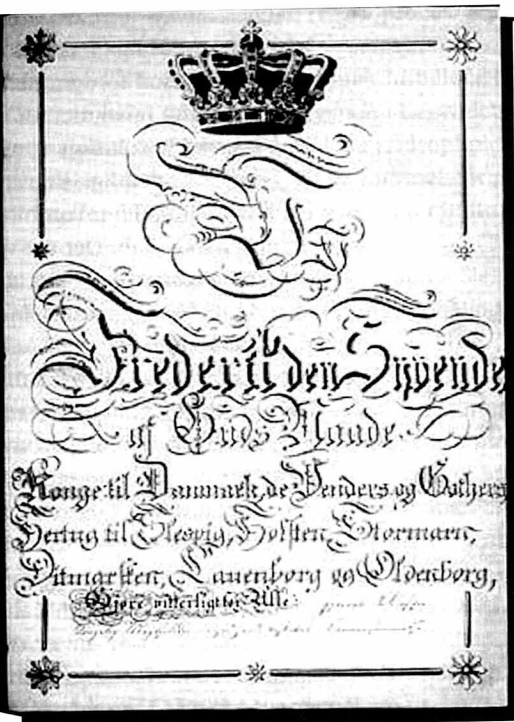 Frederik den Syvende
af Guds Naade
Konge til Danmark, de Venders og Gothers
Hertug til Slesvig, Holsten, Stormarn,
Ditmarsken, Lauenborg og Oldenborg,
Gjøre vitterligt for Alle: